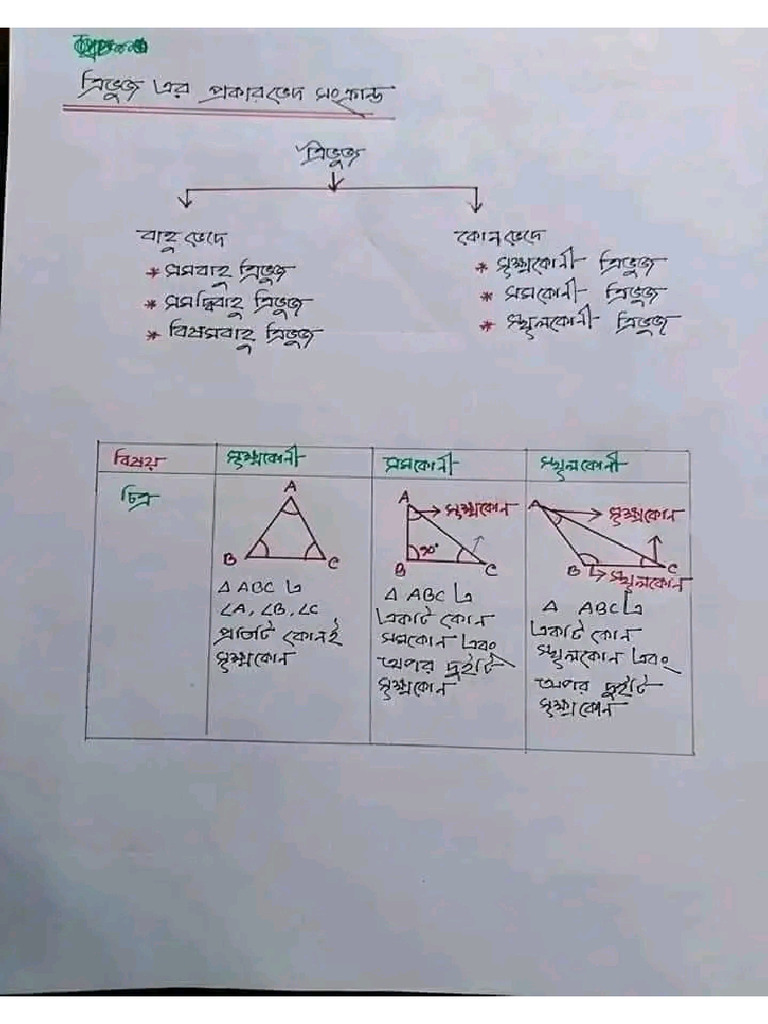 ত্রিভুজ এর প্রকারভেদ সংক্রান্ত
ত্রিভুজ
বাহুভেদে
* সমবাহু ত্রিভুজ
* সমদ্বিবাহু ত্রিভুজ
* বিষমবাহু ত্রিভুজ
কোনভেদে
* সূক্ষ্মকোনী ত্রিভুজ
* সমকোনী ত্রিভুজ
* স্থূলকোনী ত্রিভুজ
বিষয় সূক্ষ্মকোনী সমকোনী স্থূলকোনী
চিত্র
A
B C
Δ ABC এ
∠A, ∠B, ∠C
প্রতিটি কোনই
সূক্ষ্মকোন
A → সূক্ষ্মকোন
90°
B C
Δ ABC এ
একটি কোন
সমকোন এবং
অপর দুইটি
সূক্ষ্মকোন
A → সূক্ষ্মকোন
B C
→ স্থূলকোন
Δ ABC এ
একটি কোন
স্থূলকোন এবং
অপর দুইটি
সূক্ষ্মকোন